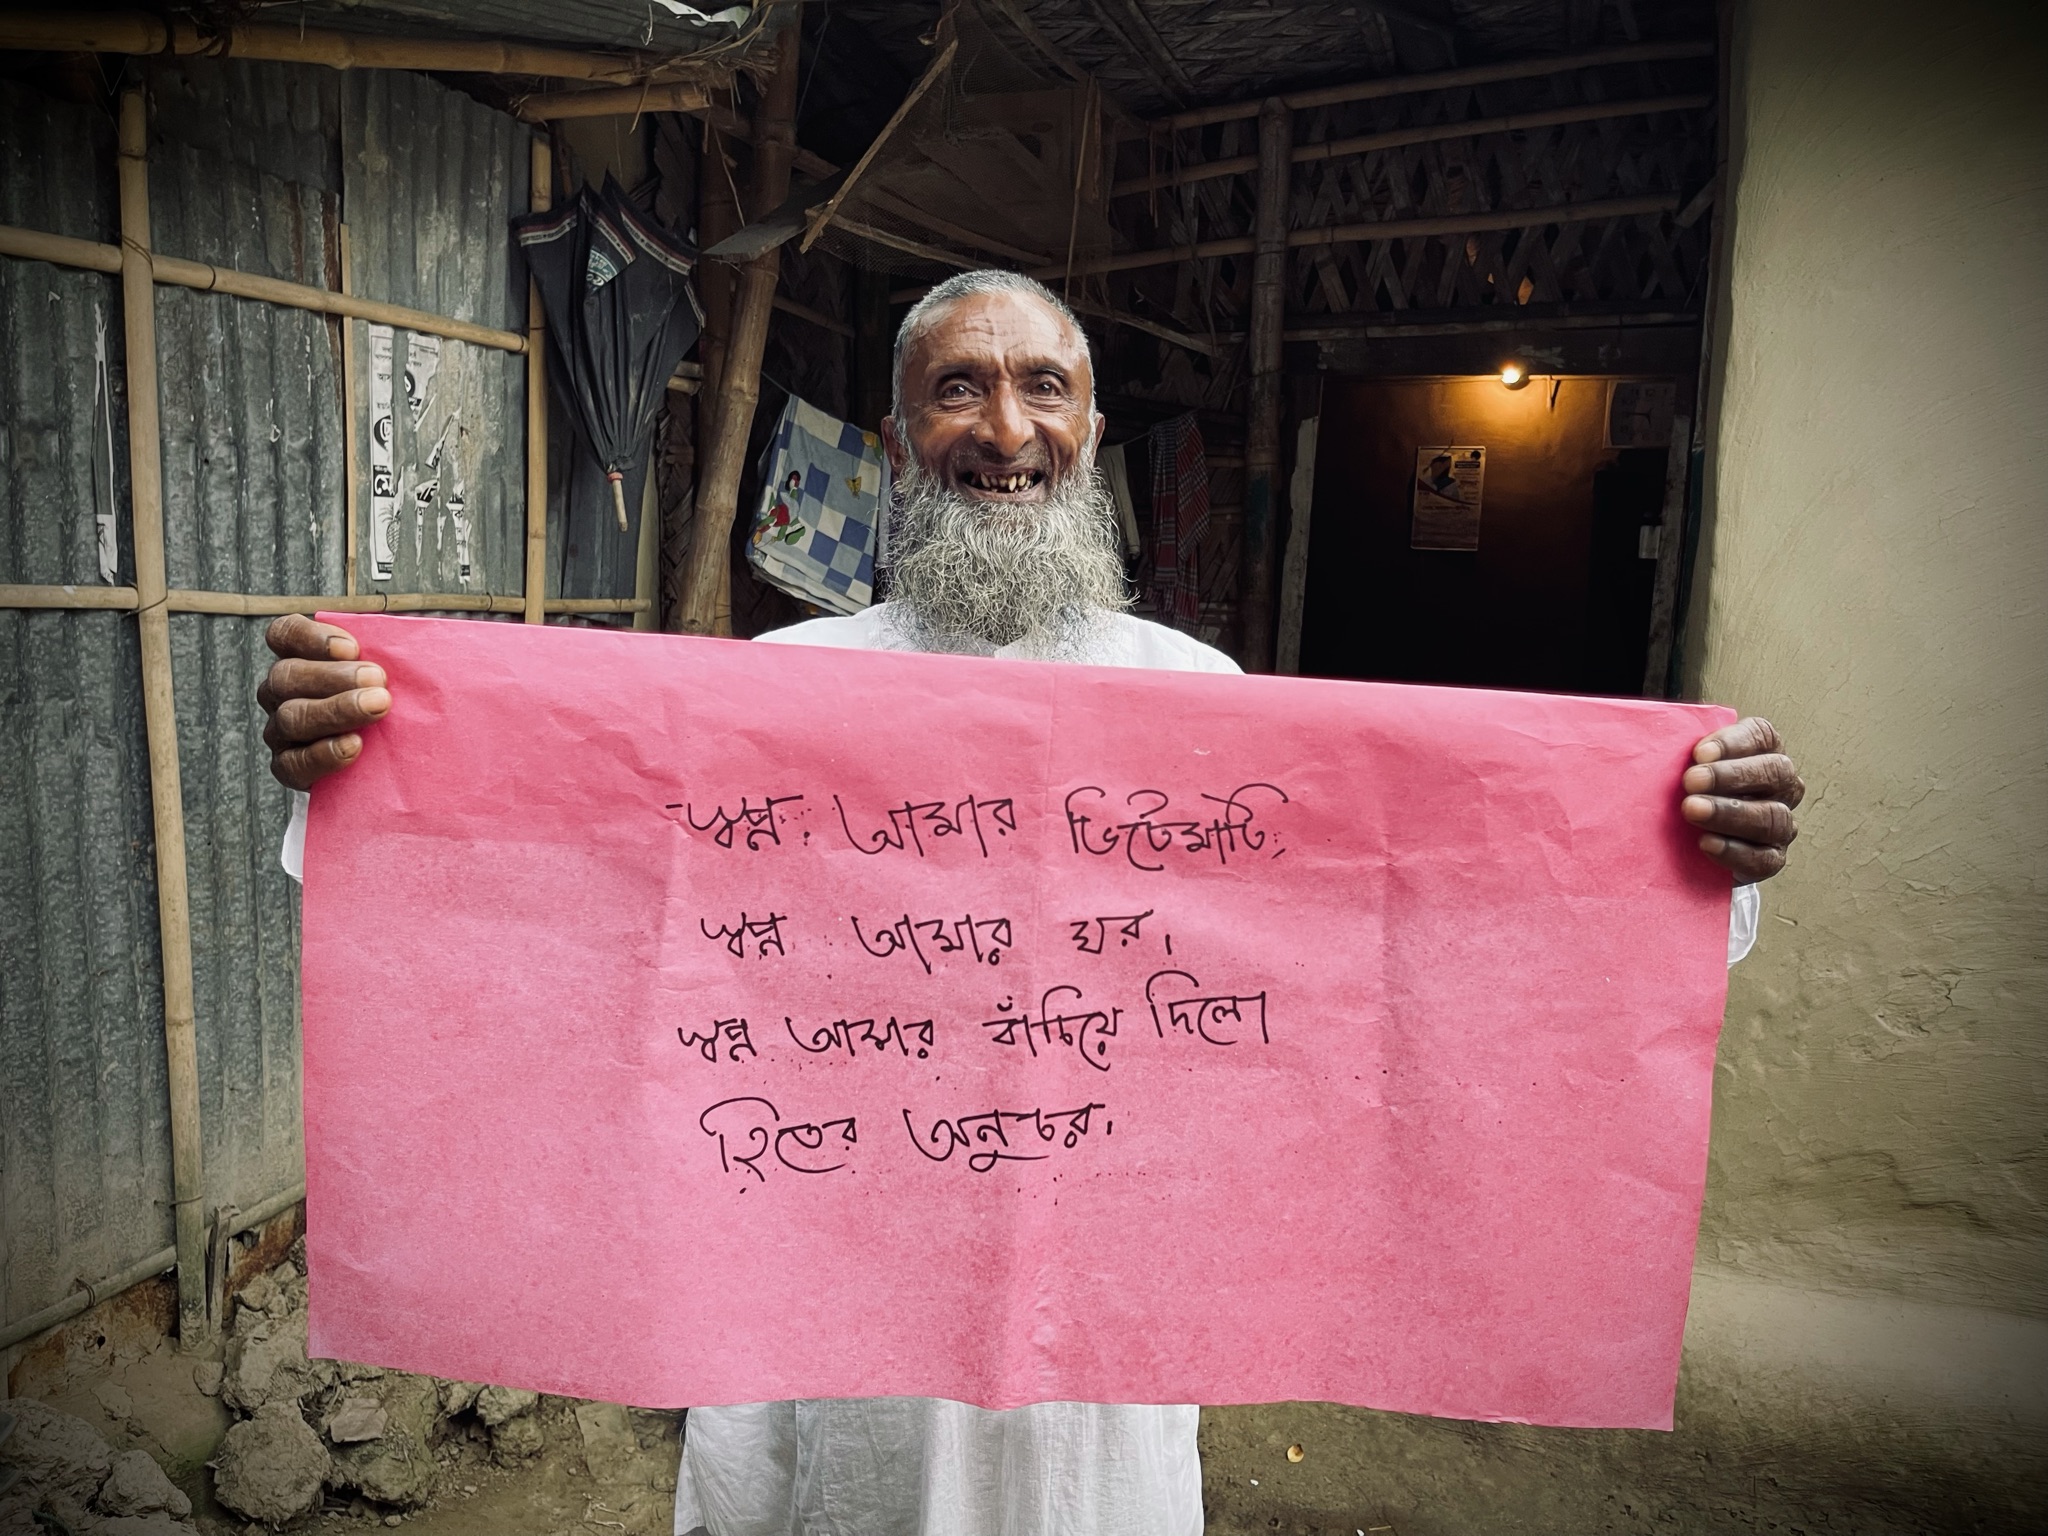 স্বপ্ন আমার ভিটেমাটি,
স্বপ্ন আমার ঘর।
স্বপ্ন আমার বাঁচিয়ে দিলো
হিতের অনুচর।